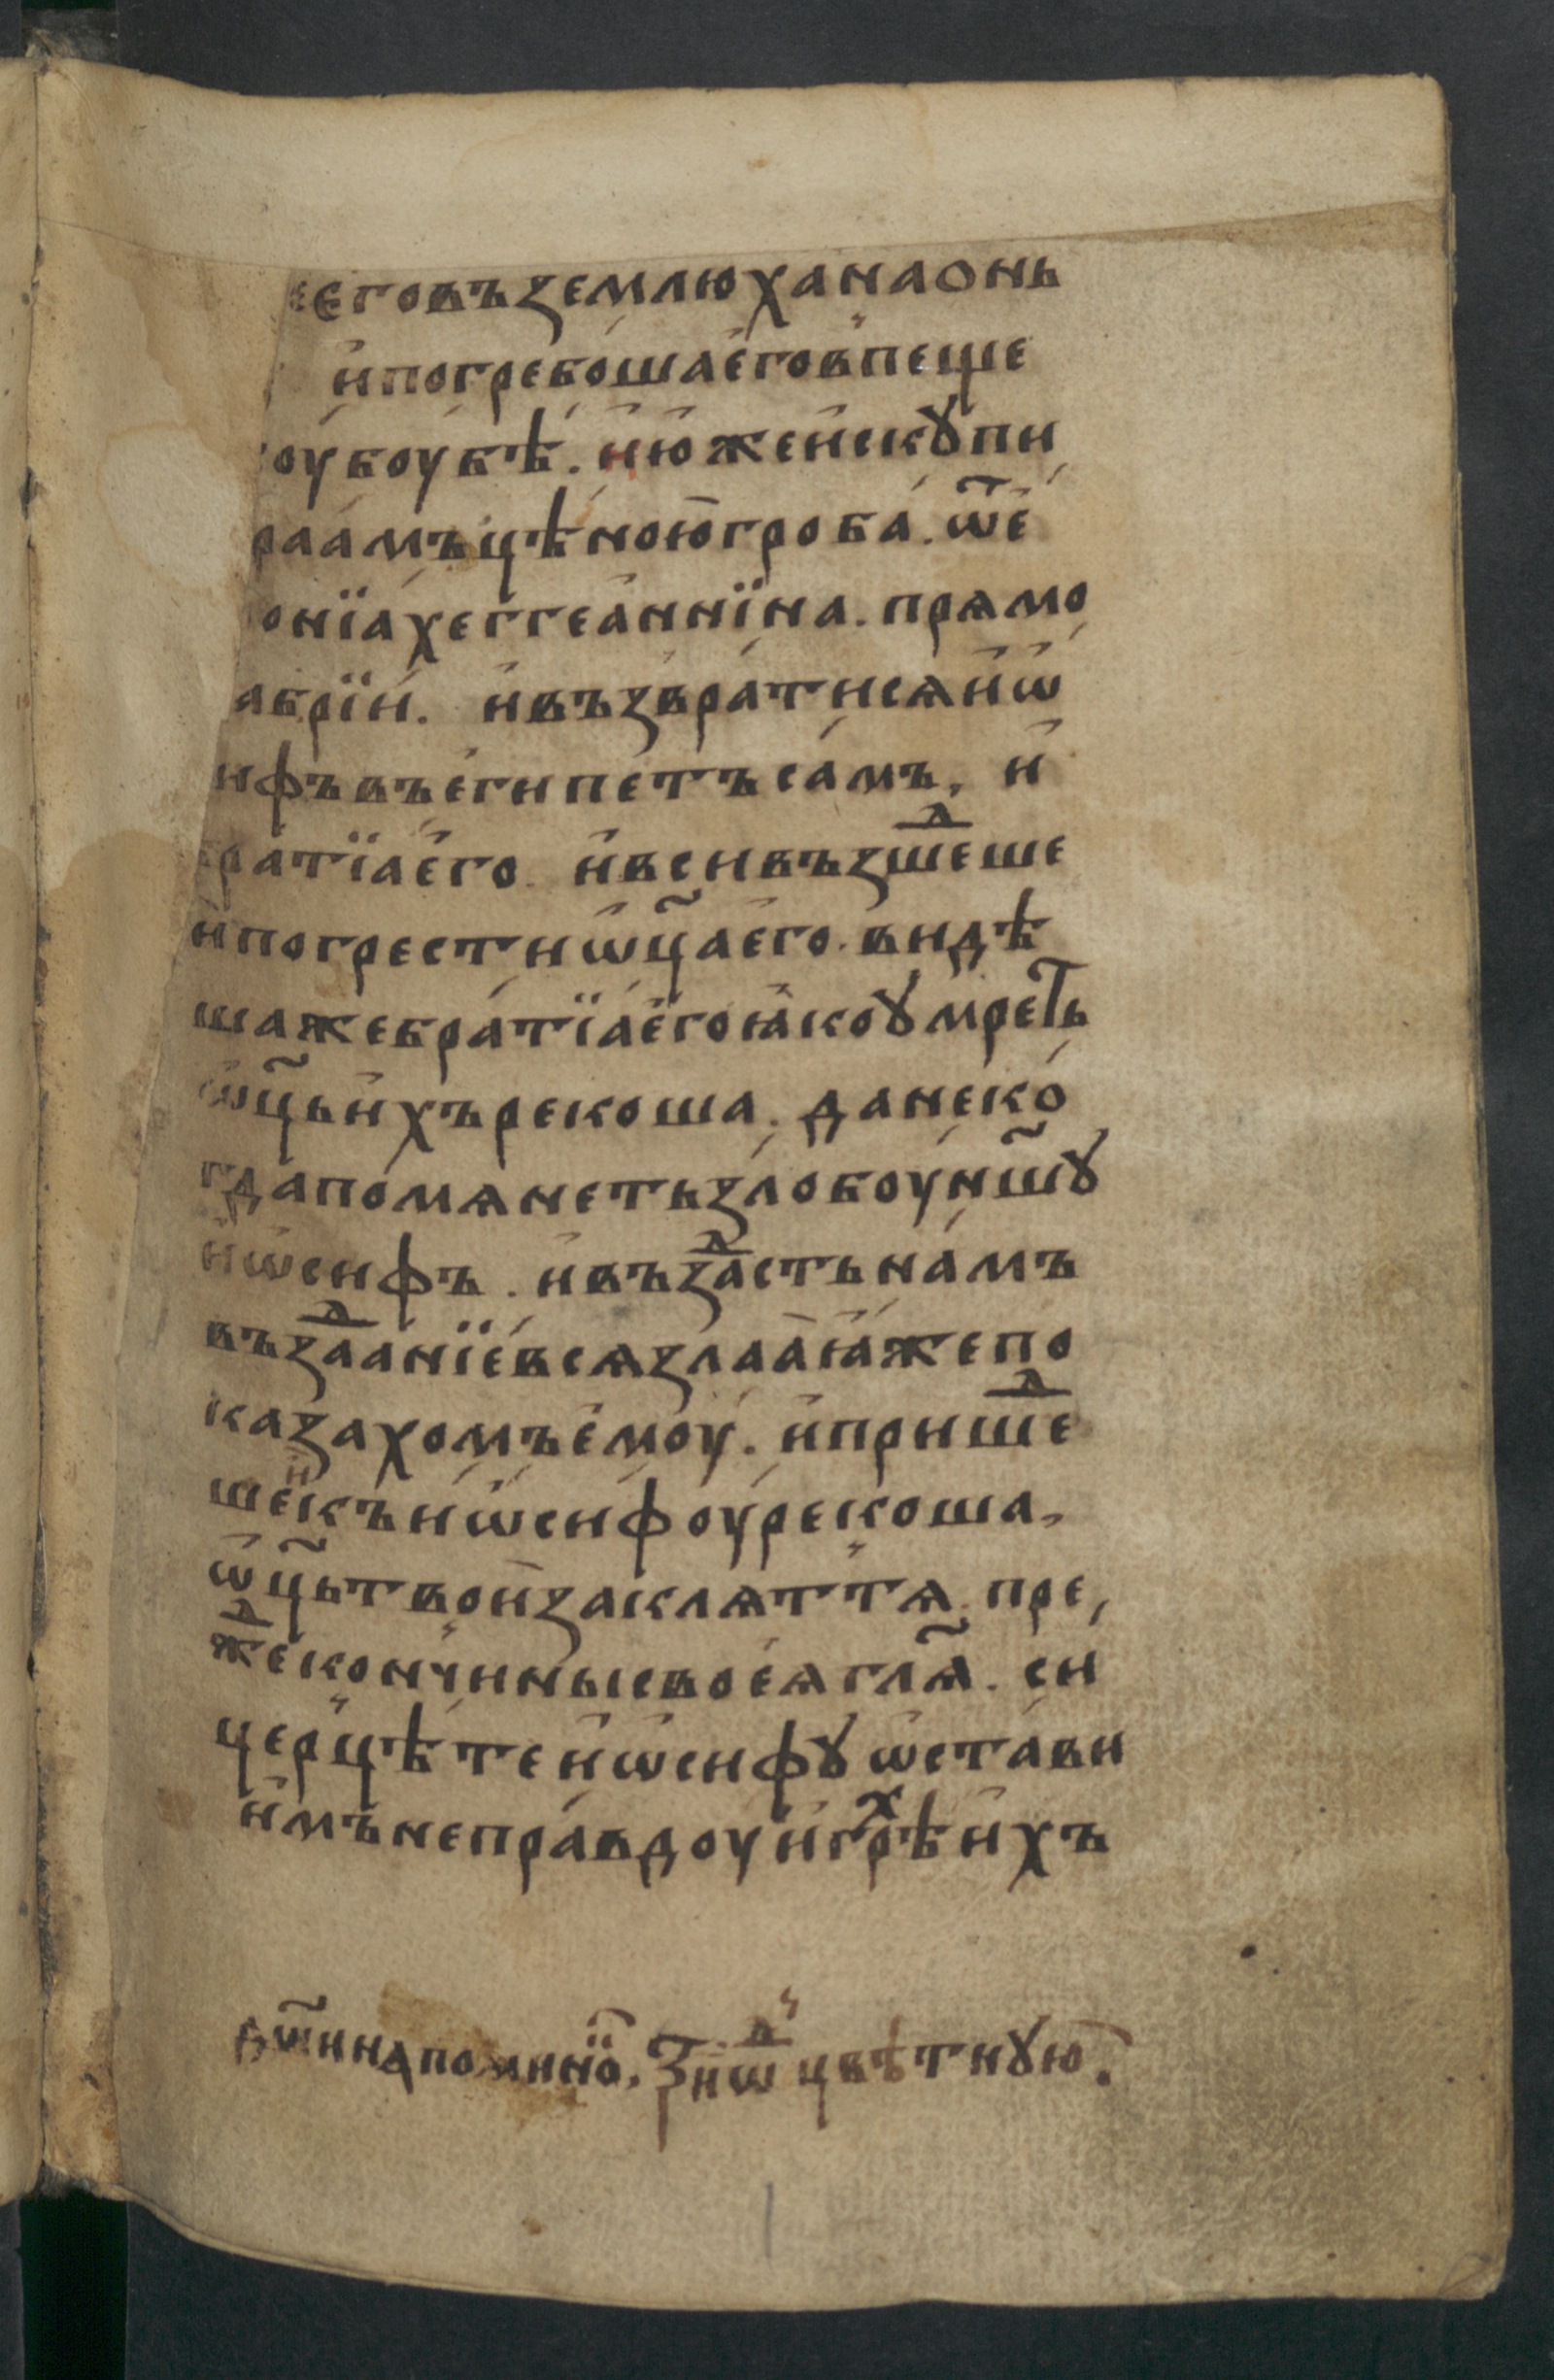 еговъ землю ханаонь
и҆погребо́ша е҆го в̾пеще
оу́боубѣ. и҆ ю҆же и҆скꙋпи
раа́мъ цѣно́ю гро́ба. ѿ є҆
онїа хеггеа́ннїна. прѧмо
абрїи́. и҆ възврати́сѧ и҆ѡ҆
ифъ въ е҆гипетъ са́мъ, и҆
ратїа е҆го. и҆вси възше́ⷣше
и҆ погрести ѡ҆ц҃а е҆го. видѣ
шаже бра́тїа е҆го ꙗ҆ко ᲂу҆мретъ
ѡ҆ц҃ьи҆хъ рекоша. да неко́
гда помѧнеть злобоу н҃шꙋ
и҆ѡсифъ. и҆ въза́ⷣсть на́мъ
възаⷣанїе всѧ злаа ꙗ҆же по
казахомъ е҆моу́. и҆ прише́ⷣ
ше и҆ къ и҆ѡсифоу реко́ша,
ѡ҆ц҃ь твои заклѧт тѧ. пре,
жеⷣ кончи́ны своеѧ гл҃ѧ. си
це рцѣте и҆ѡ҆сифꙋ ѡ҆ста́ви
и҆мъ непра́вдоу и҆ грѣⷯ и҆хъ
цвѣтнꙋю.